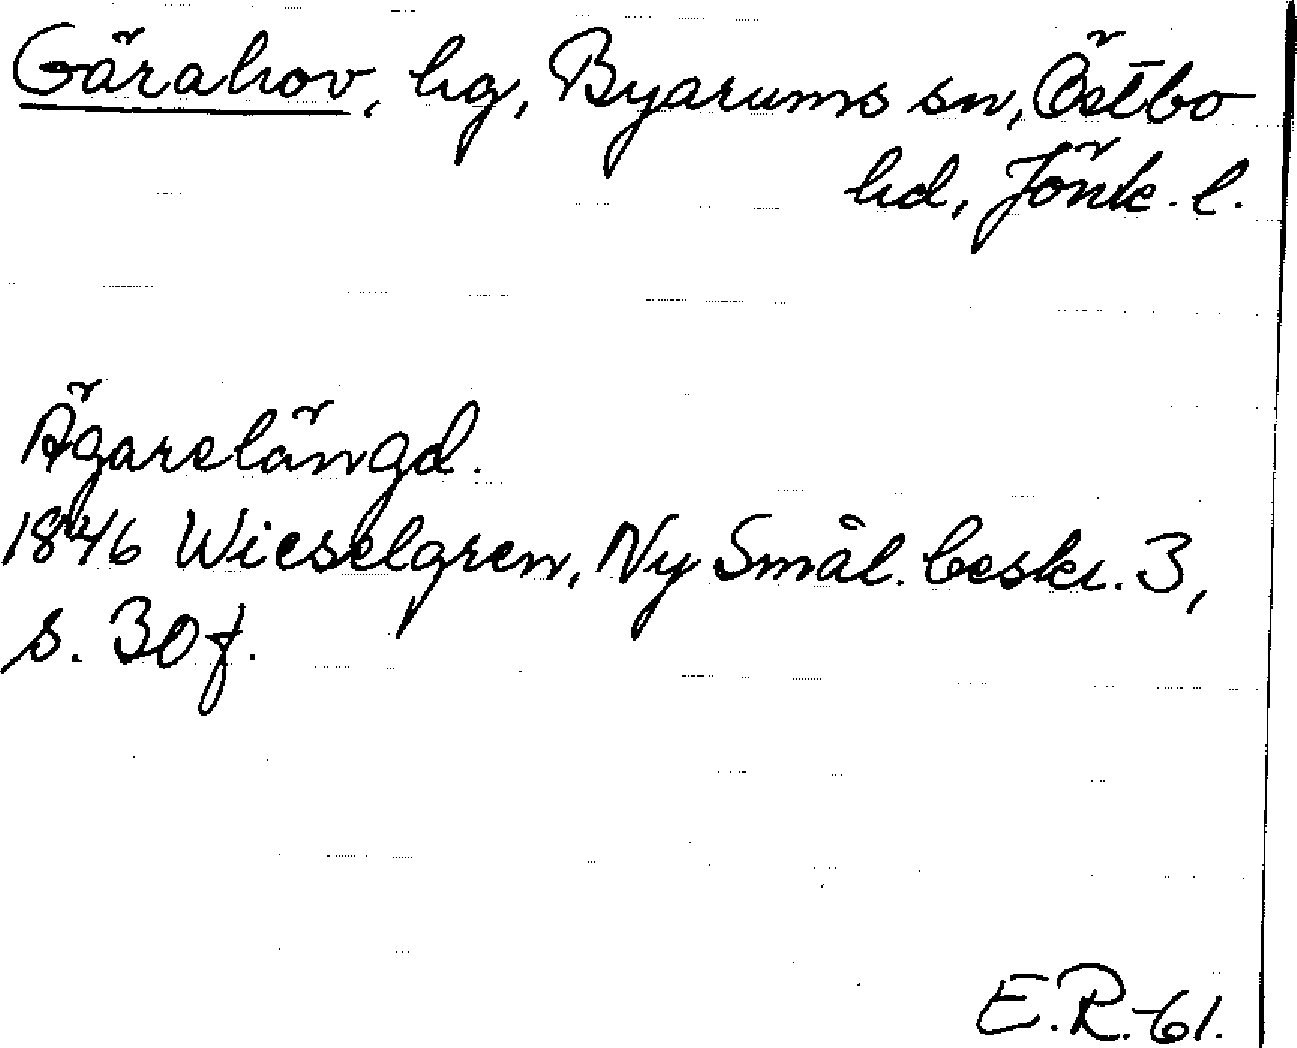 Gärahov, hg, Byarums sn, Östbo
hd, Jönk. l.
Ägarelängd.
1846 Wieselgren, Ny Smål. beskr. 3,
s. 30 f.
E.R.-61.